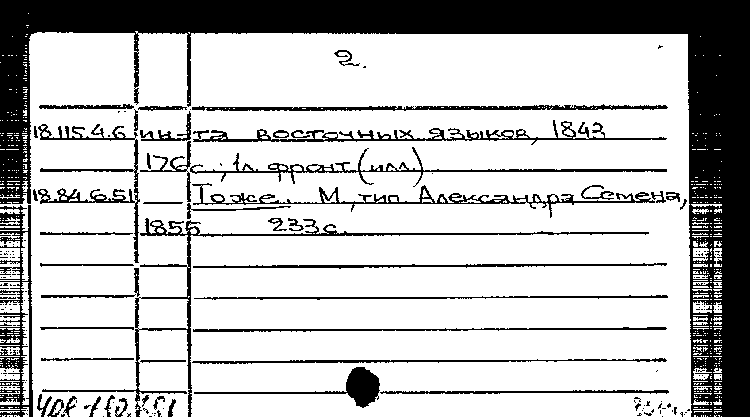 2.
18.115.4.6 ин-та восточных языков, 1842
176с.; 1л. фронт. (илл.)
18.84.6.51 Тоже. М., тип. Александра Семена,
1855 233с.